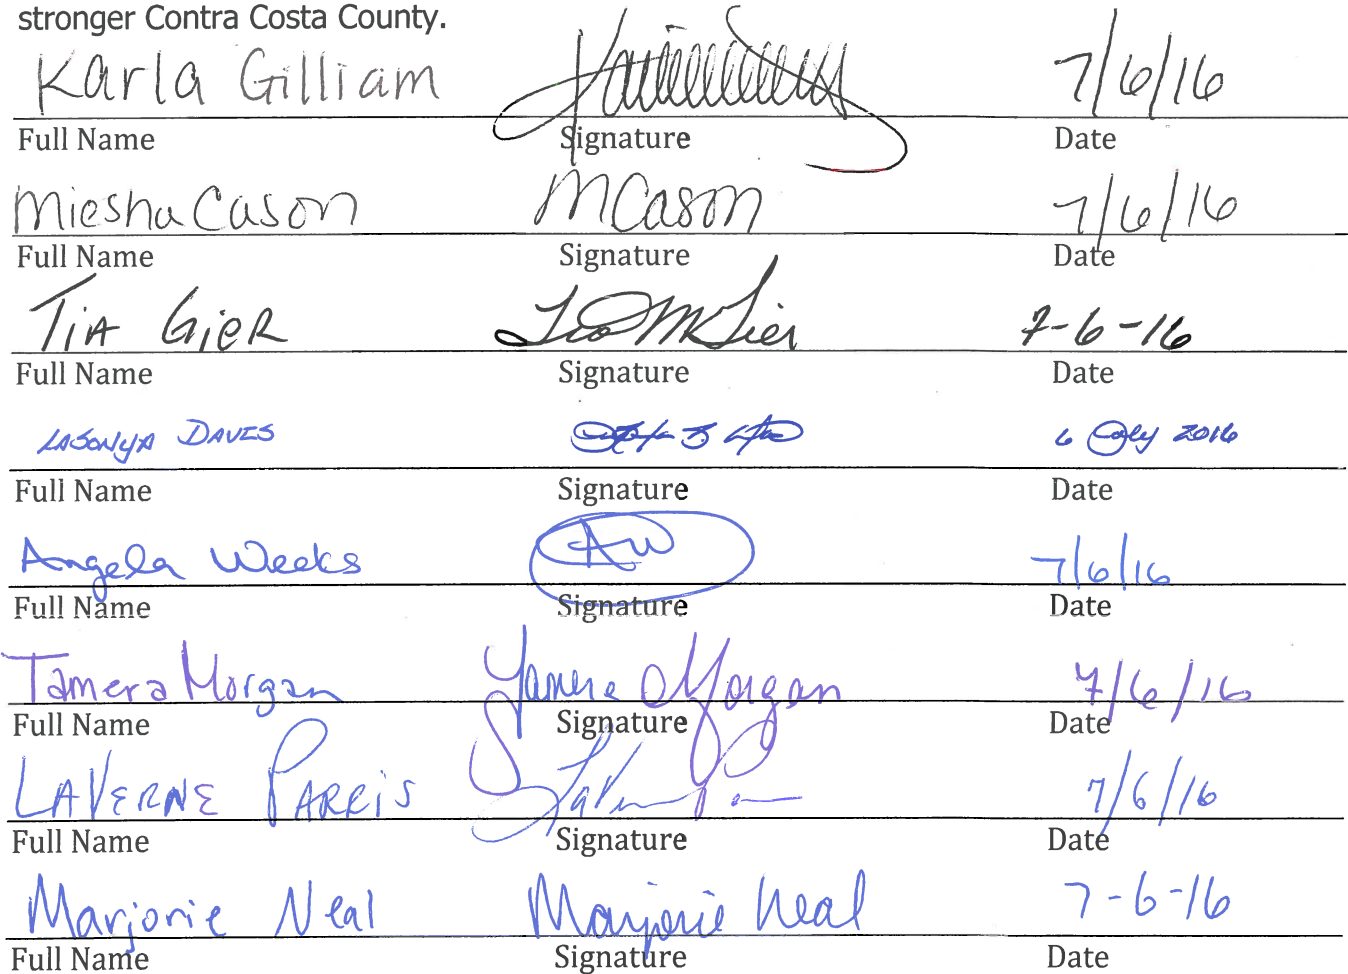 stronger Contra Costa County.
Karla Gilliam 7/6/16
Full Name Signature Date
Miesha Cason MCason 7/6/16
Full Name Signature Date
TiA GieR 7-6-16
Full Name Signature Date
LASONYA DAVIS 6 July 2016
Full Name Signature Date
Angela Weeks AW 7/6/16
Full Name Signature Date
Tamera Morgan Tamera Morgan 7/6/16
Full Name Signature Date
LAVERNE PARRiS 7/6/16
Full Name Signature Date
Marjorie Neal Marjorie Neal 7-6-16
Full Name Signature Date